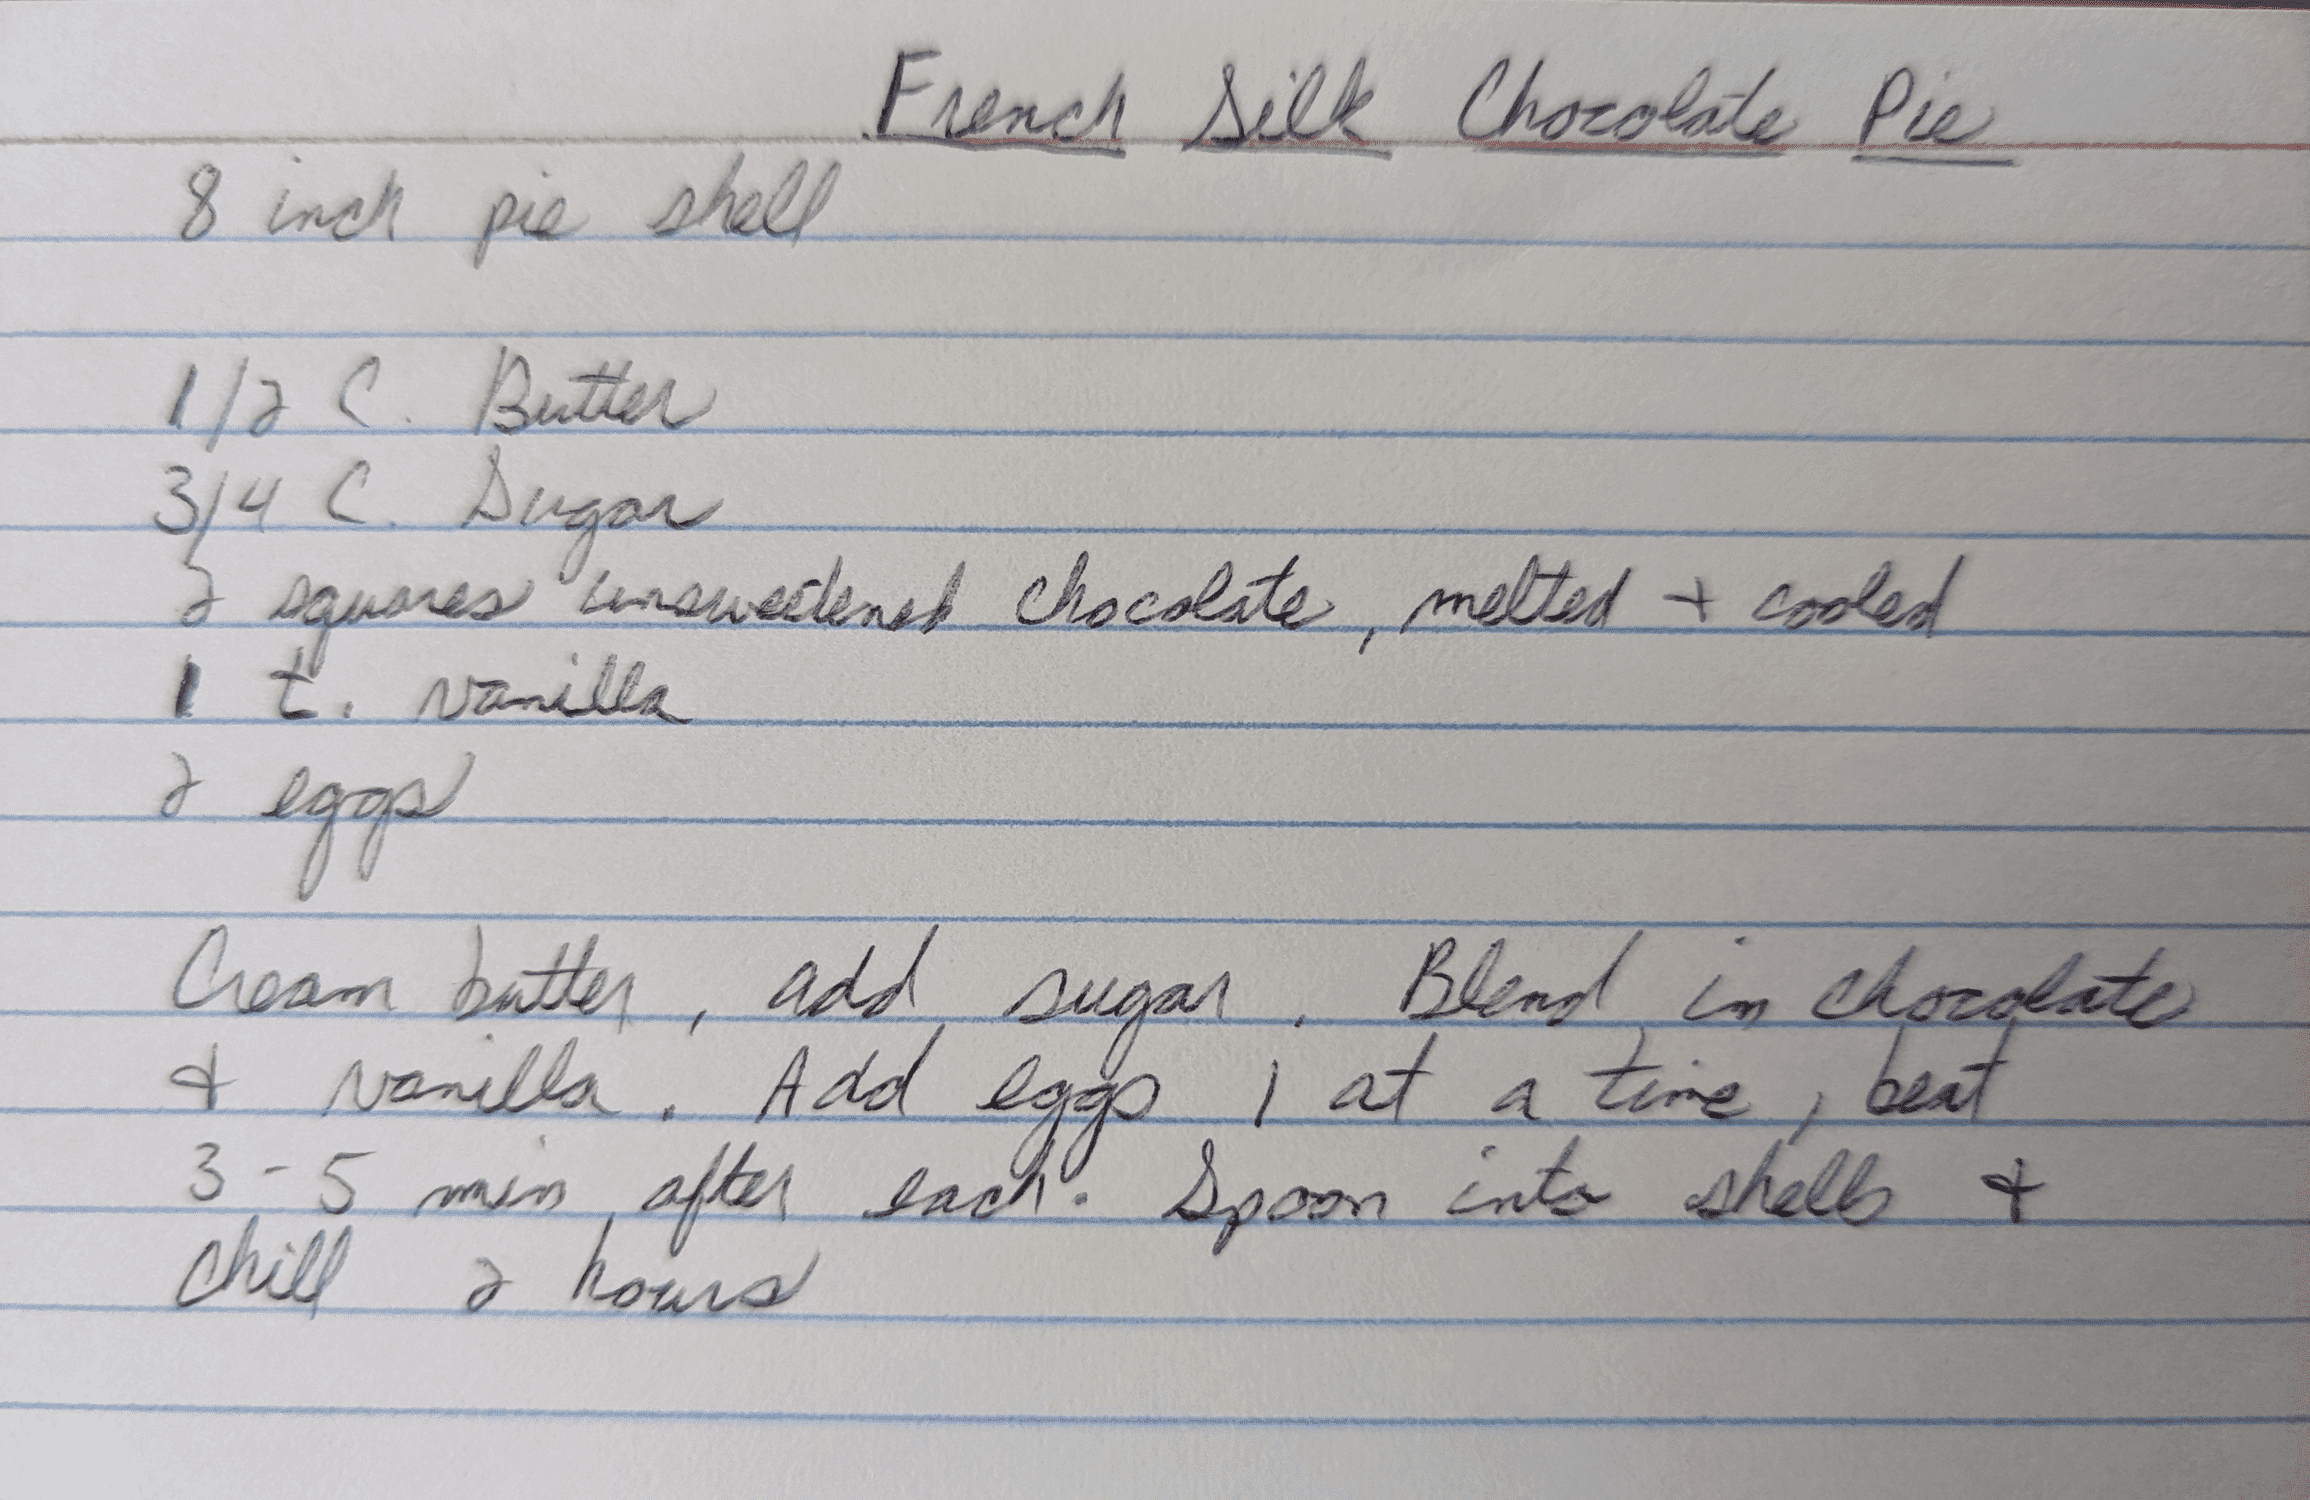 French Silk Chocolate Pie
8 inch pie shell
1/2 C. Butter
3/4 C. Sugar
2 squares unsweetened chocolate, melted + cooled
1 t. vanilla
2 eggs
Cream butter, add sugar. Blend in chocolate
+ vanilla. Add eggs 1 at a time, beat
3-5 min after each. Spoon into shells +
chill 2 hours